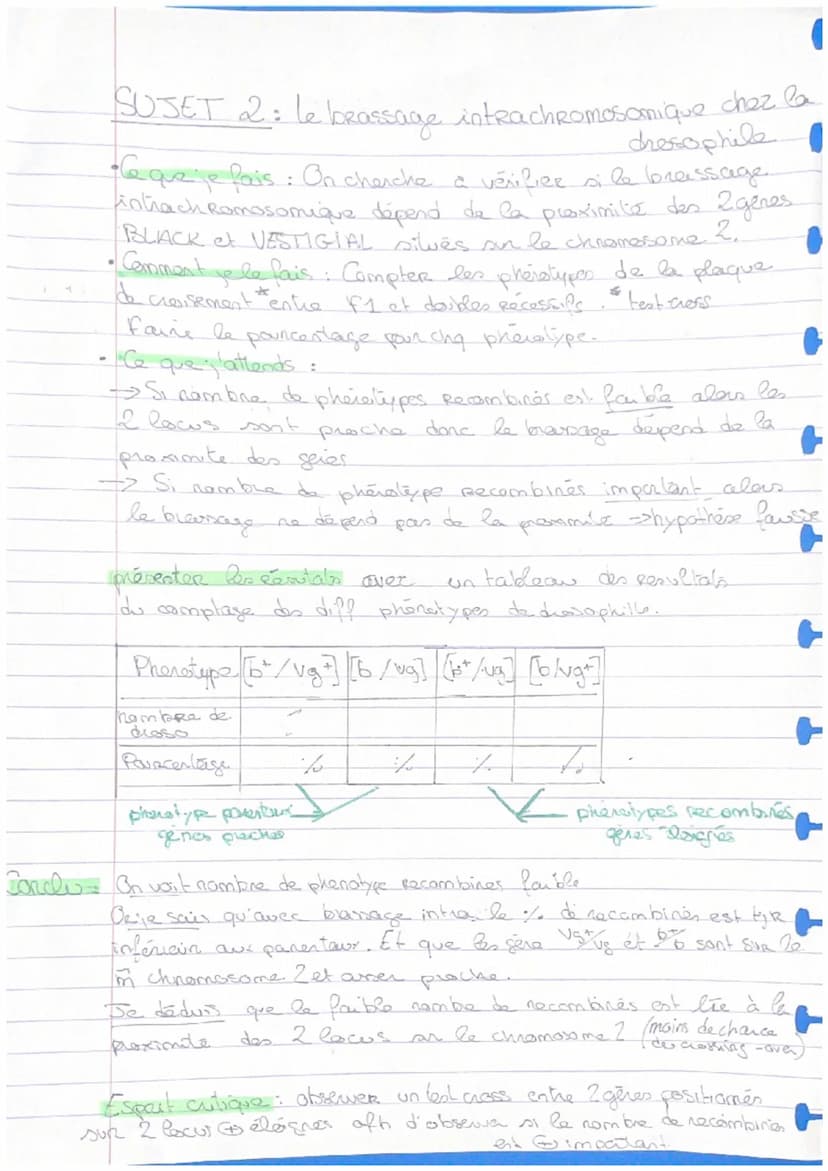 SUJET 2 : le brassage intrachromosomique chez la
drosophile
• Ce que je fais : On cherche à vérifier si le brassage
intrachromosomique dépend de la proximité des 2 gènes
BLACK et VESTIGIAL situés sur le chromosome 2.
• Comment je le fais : Compter les phénotypes de la plaque
de croisement * entre F1 et doubles récessifs . * test cross
Faire le pourcentage pour chq phénotype.
• Ce que j'attends :
→ Si nombre de phénotypes recombinés est faible alors les
2 locus sont proche donc le brassage dépend de la
proximité des gènes
→ Si nombre de phénotype recombinés important alors
le brassage ne dépend pas de la proximité → hypothèse fausse
présenter les résultats avec un tableau des resultats
du comptage des diff phénotypes de drosophile.
Phenotype [b+ / vg+] [b / vg] [b+ / vg] [b/vg+]
nombre de
droso
Pourcentage % % % %
phenotype parentaux phénotypes recombinés
gènes proches gènes éloignés
Conclu = On voit nombre de phenotype recombinés faible
Or je sais qu'avec brassage intra, le % de recombinés est tjr
inférieur aux parentaux. Et que les gène vg+/vg et b+/b sont sur le
m̂ chromosome 2 et assez proche.
Je déduis que le faible nombre de recombinés est lié à la
proximité des 2 locus sur le chromosome 2 (moins de chance
de crossing-over)
Esprit critique : observer un test cross entre 2 gènes positionnés
sur 2 locus ⊕ éloignés afin d'observer si le nombre de recombinés
est ⊕ important